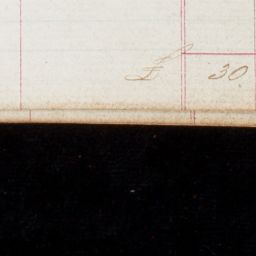 £ 30